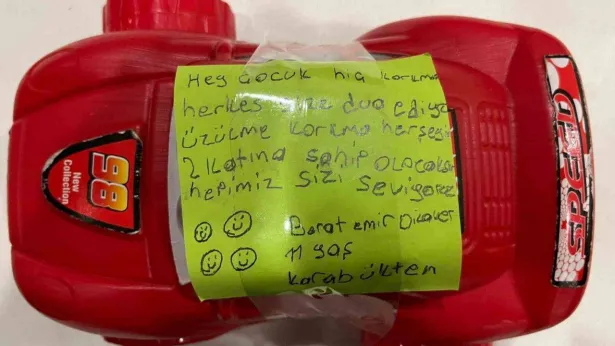 Hey Çocuk hiç korkma
herkes size dua ediyor
üzülme korkma herşeyin
2 katına sahip olacaksın
hepimiz sizi seviyoruz
Berat emir
11 yaş
Karabükten
New
Collection
86
SPEED